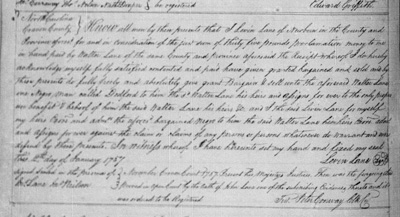 be registered Edward Griffith
North Carolina
Craven County } Know all men by these presents that I Levin Lane of Newbern in the County and
Province aforesd for and in consideration of the just sum of thirty five pounds proclamation money to me
in hand paid by Walter Lane of the same County and Province aforesaid the Receipt whereof I do hereby
acknowledge myself fully satisfied contented and paid have given granted bargained and sold and by
these presents do fully freely and absolutely give grant bargain & sell unto the aforesaid Walter Lane
one Negro Man called to Him the sd Walter Lane his heirs and assigns for ever to the only proper
use benefit & behoof of him the said Walter Lane his heirs & and I the said Levin Lane for myself
my heirs Exrs and admrs the aforesd bargained Negro to him the said Walter Lane
and assigns for ever against the claim or claims of any person or persons whatsoever do warrant and
defend by these presents. In witness whereof I have hereunto set my hand and Seal
This 2d day of January 1757 Levin Lane
signed sealed in the presence of } November Craven Court 1757. Present his Majesty's Justices then was the foregoing
Lane } Proved in open Court by the oath of John Lane one of the subscribing Evidences thereto and
was ordered to be Registered
Peter Conway